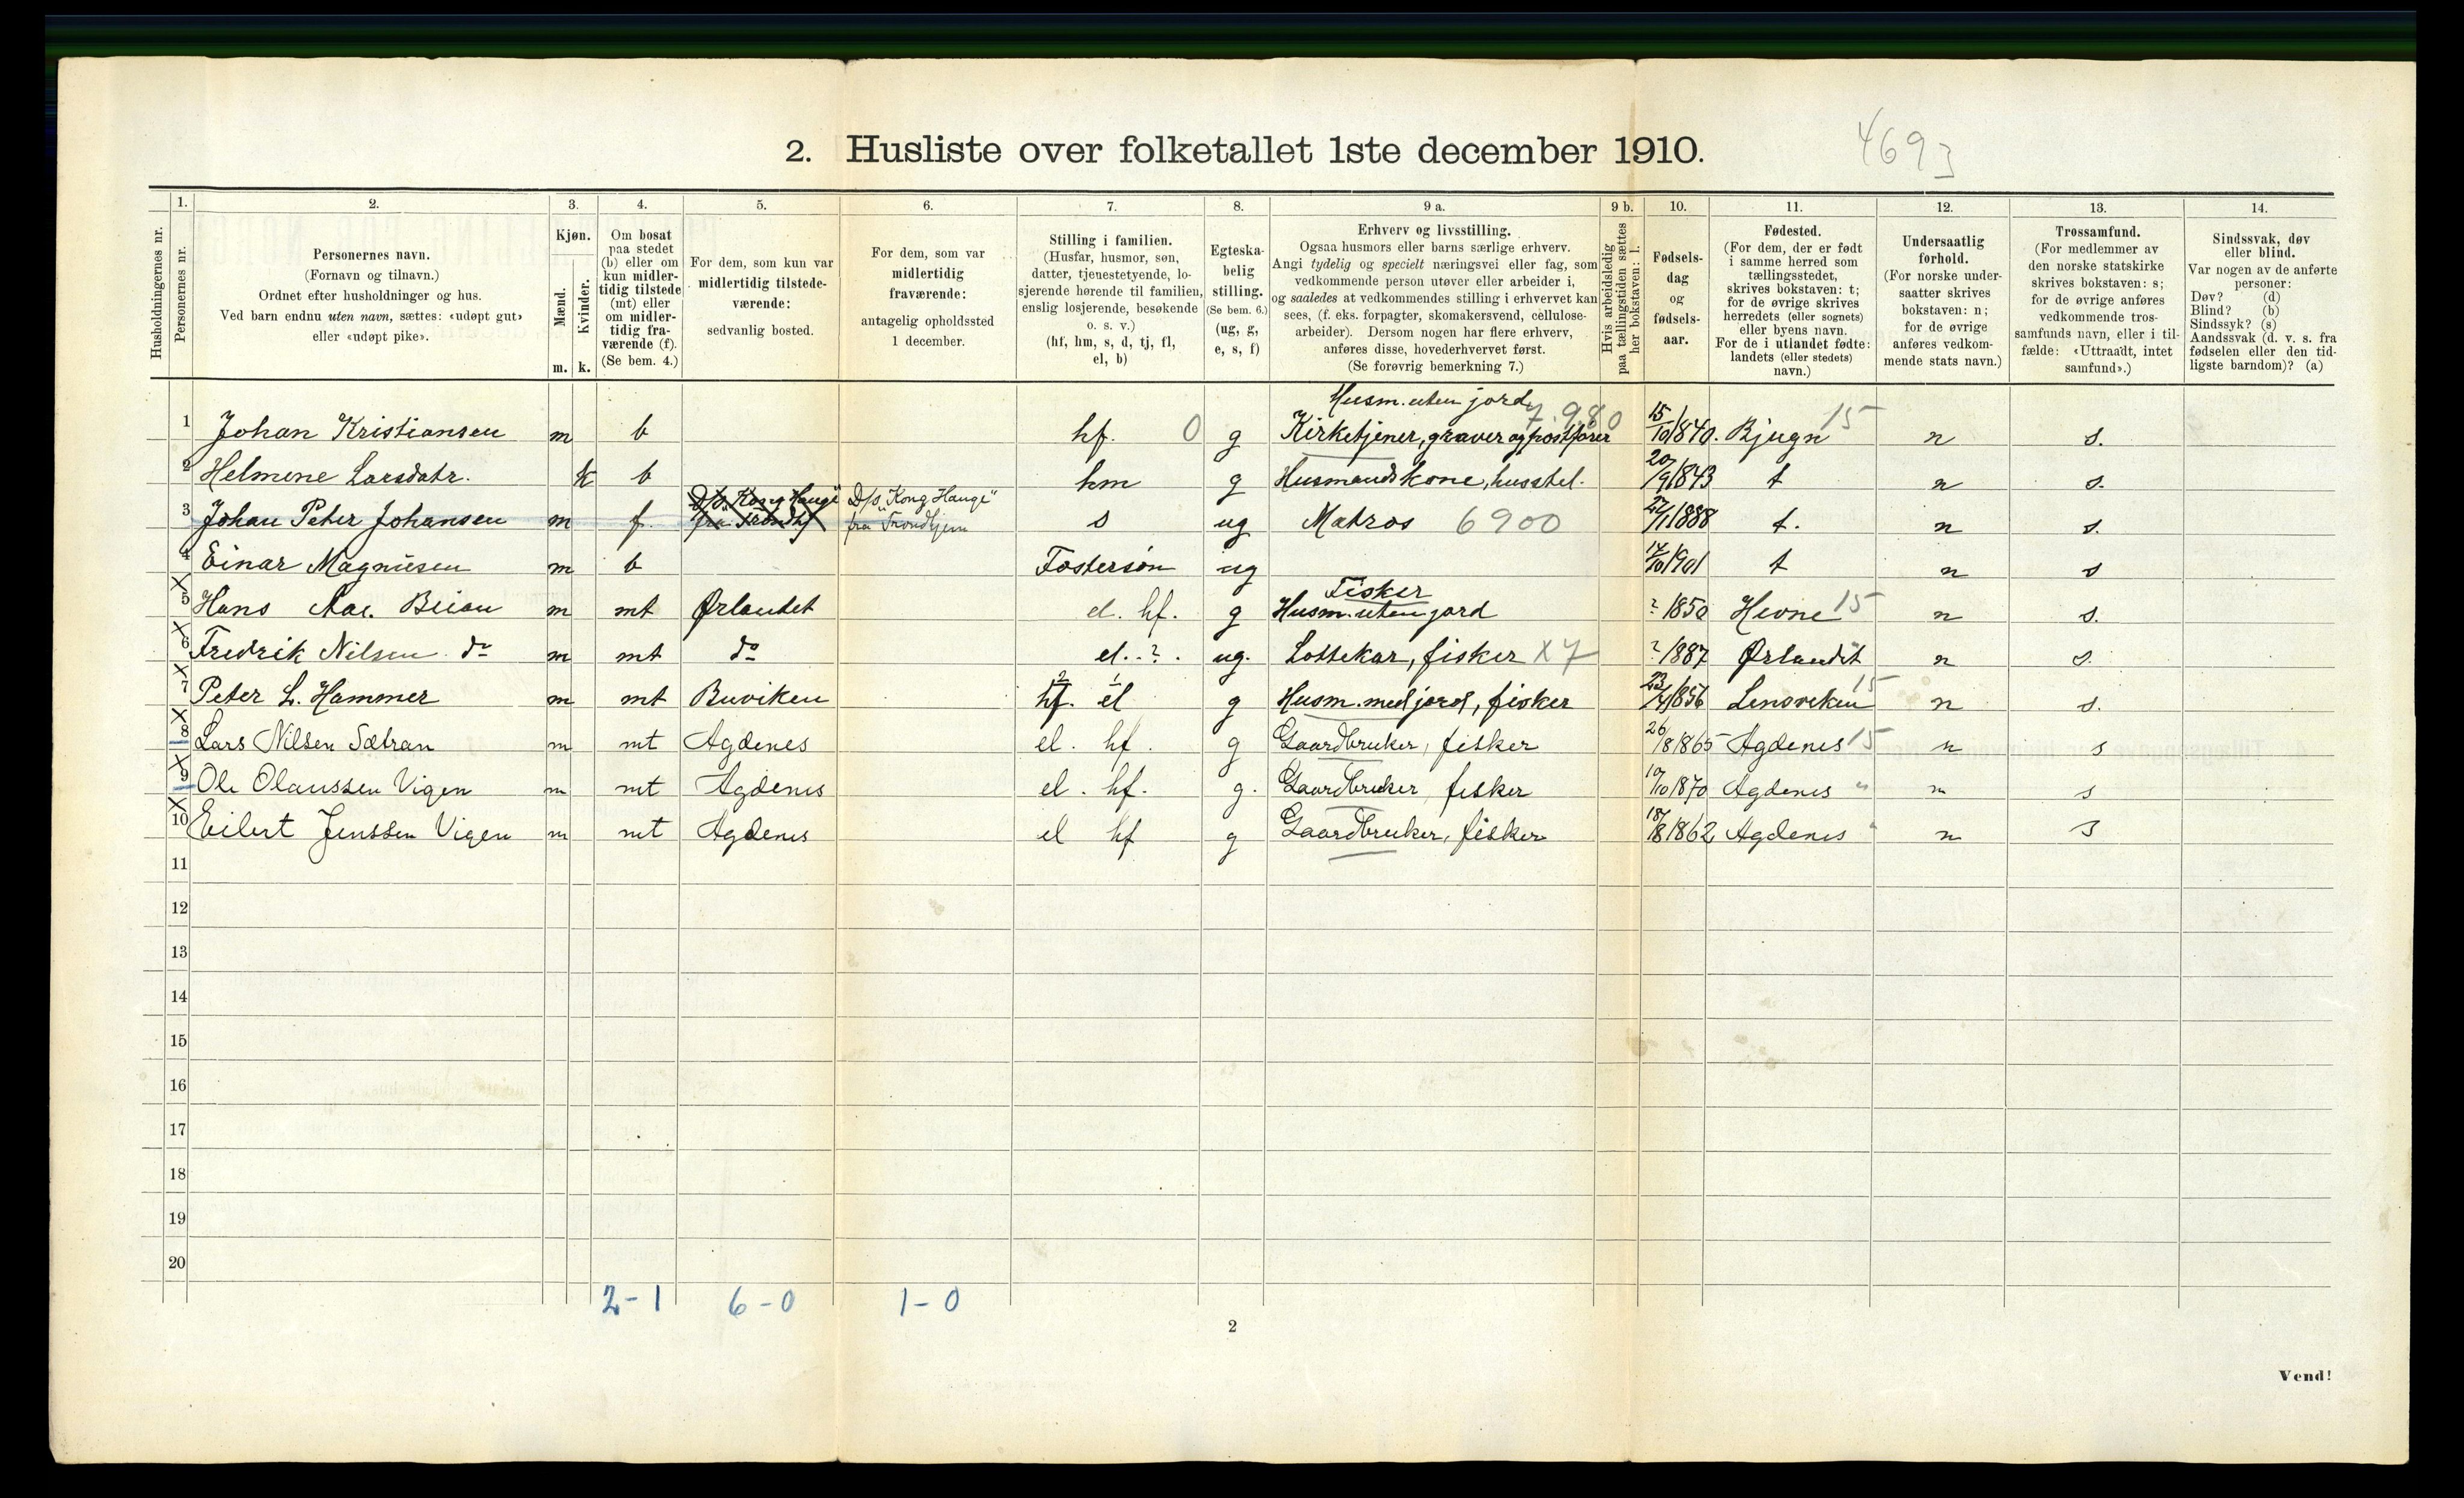 2. Husliste over folketallet 1ste december 1910.
469
Husholdningernes nr.
1. Personernes nr.
2.
Personernes navn.
(Fornavn og tilnavn.)
Ordnet efter husholdninger og hus.
Ved barn endnu uten navn, sættes: «udøpt gut»
eller «udøpt pike».
3.
Kjøn.
Mænd. Kvinder.
m. k.
4.
Om bosat
paa stedet
(b) eller om
kun midler-
tidig tilstede
(mt) eller
om midler-
tidig fra-
værende (f).
(Se bem. 4.)
5.
For dem, som kun var
midlertidig tilstede-
værende:
sedvanlig bosted.
6.
For dem, som var
midlertidig
fraværende:
antagelig opholdssted
1 december.
7.
Stilling i familien.
(Husfar, husmor, søn,
datter, tjenestetyende, lo-
sjerende hørende til familien,
enslig losjerende, besøkende
o. s. v.)
(hf, hm, s, d, tj, fl,
el, b)
8.
Egteska-
belig
stilling.
(Se bem. 6.)
(ug, g,
e, s, f)
9 a.
Erhverv og livsstilling.
Ogsaa husmors eller barns særlige erhverv.
Angi tydelig og specielt næringsvei eller fag, som
vedkommende person utøver eller arbeider i,
og saaledes at vedkommendes stilling i erhvervet kan
sees, (f. eks. forpagter, skomakersvend, cellulose-
arbeider). Dersom nogen har flere erhverv,
anføres disse, hovederhvervet først.
(Se forøvrig bemerkning 7.)
9 b.
Hvis arbeidsledig
paa tællingstiden sættes
her bokstaven: l.
10.
Fødsels-
dag
og
fødsels-
aar.
11.
Fødested.
(For dem, der er født
i samme herred som
tællingsstedet,
skrives bokstaven: t;
for de øvrige skrives
herredets (eller sognets)
eller byens navn.
For de i utlandet fødte:
landets (eller stedets)
navn.)
12.
Undersaatlig
forhold.
(For norske under-
saatter skrives
bokstaven: n;
for de øvrige
anføres vedkom-
mende stats navn.)
13.
Trossamfund.
(For medlemmer av
den norske statskirke
skrives bokstaven: s;
for de øvrige anføres
vedkommende tros-
samfunds navn, eller i til-
fælde: «Uttraadt, intet
samfund».)
14.
Sindssvak, døv
eller blind.
Var nogen av de anførte
personer:
Døv? (d)
Blind? (b)
Sindssyk? (s)
Aandssvak (d. v. s. fra
fødselen eller den tid-
ligste barndom)? (a)
Husm. uten jord 7.980
1 Johan Kristiansen m b hf. 0 g Kirketjener, graver og postfører 15/10 1840. Bjugn 15 n s.
2 Helmine Larsdatr. k b hm g Husmandskone, husstel. 20/9 1843 t n s.
D/s "Kong Hauge" D/s "Kong Hauge"
3 Johan Peter Johansen m f. fra Trondhj fra Trondhjem s ug Matros 6900 1888 t. n s.
4 Einar Magnusen m b Fostersøn ug 1901 t n s
Fisker
5 Hans Beian m mt Ørlandet el. hf. g Husm. uten jord ? 1850 Hevne 15 n s.
6 Fredrik Nilsen do m mt do el. ? ug. Lottekar, fisker X 7 ? 1887 Ørlandet n s.
7 Peter L. Hammer m mt Buviken hf. el g Husm. med jord, fisker 1856 Lensviken 15 n s.
8 Lars Nilsen Sætran m mt Agdenes el. hf. g Gaardbruker, fisker 26/8 1865 Agdenes 15 n s
9 Ole Olaussen Vigen m mt Agdenes el. hf. g. Gaardbruker fisker 10/10 1870 Agdenes " n s
10 Eilert Jenssen Vigen m mt Agdenes el hf g Gaardbruker, fisker 18/8 1862 Agdenes " n s
11
12
13
14
15
16
17
18
19
20
2 - 1 6 - 0 1 - 0
2
Vend!